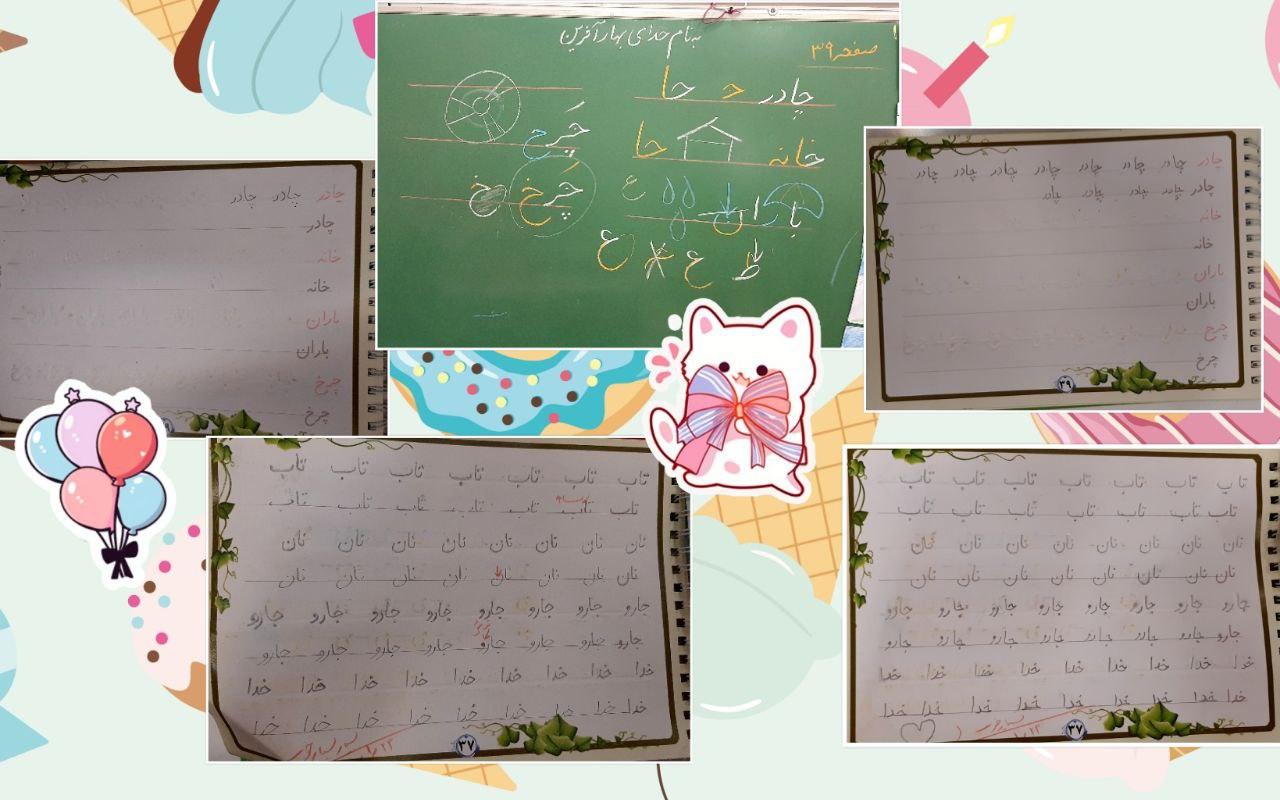 به نام خدای بهار آفرین
صفحه ۳۹
چادر حا
خانه حا
با ران ع
ط ع ع
چَرح
چَرخ خ
چادر چادر چادر
چادر
خانه
خانه
باران
باران
چرخ
چرخ
چادر چادر چادر چادر چادر چادر چادر چادر
چادر چادر چادر چادر چادر
خانه
خانه
باران
باران
چرخ
چرخ
۳۹
تاب تاب تاب تاب تاب تاب تاب
تاب تاب تاب تاب تاب تاب تاب
نان نان نان نان نان نان نان
نان نان نان نان نان نان نان
جارو جارو جارو جارو جارو جارو جارو جارو
جارو جارو جارو جارو جارو جارو جارو جارو
خدا خدا خدا خدا خدا خدا خدا خدا
خدا خدا خدا خدا خدا خدا خدا خدا
۳۷
تاب تاب تاب تاب تاب تاب تاب
تاب تاب تاب تاب تاب تاب تاب
نان نان نان نان نان نان نان
نان نان نان نان نان نان نان
جارو جارو جارو جارو جارو جارو جارو جارو
جارو جارو جارو جارو جارو جارو جارو جارو
خدا خدا خدا خدا خدا خدا خدا خدا
خدا خدا خدا خدا خدا خدا خدا خدا
۳۷